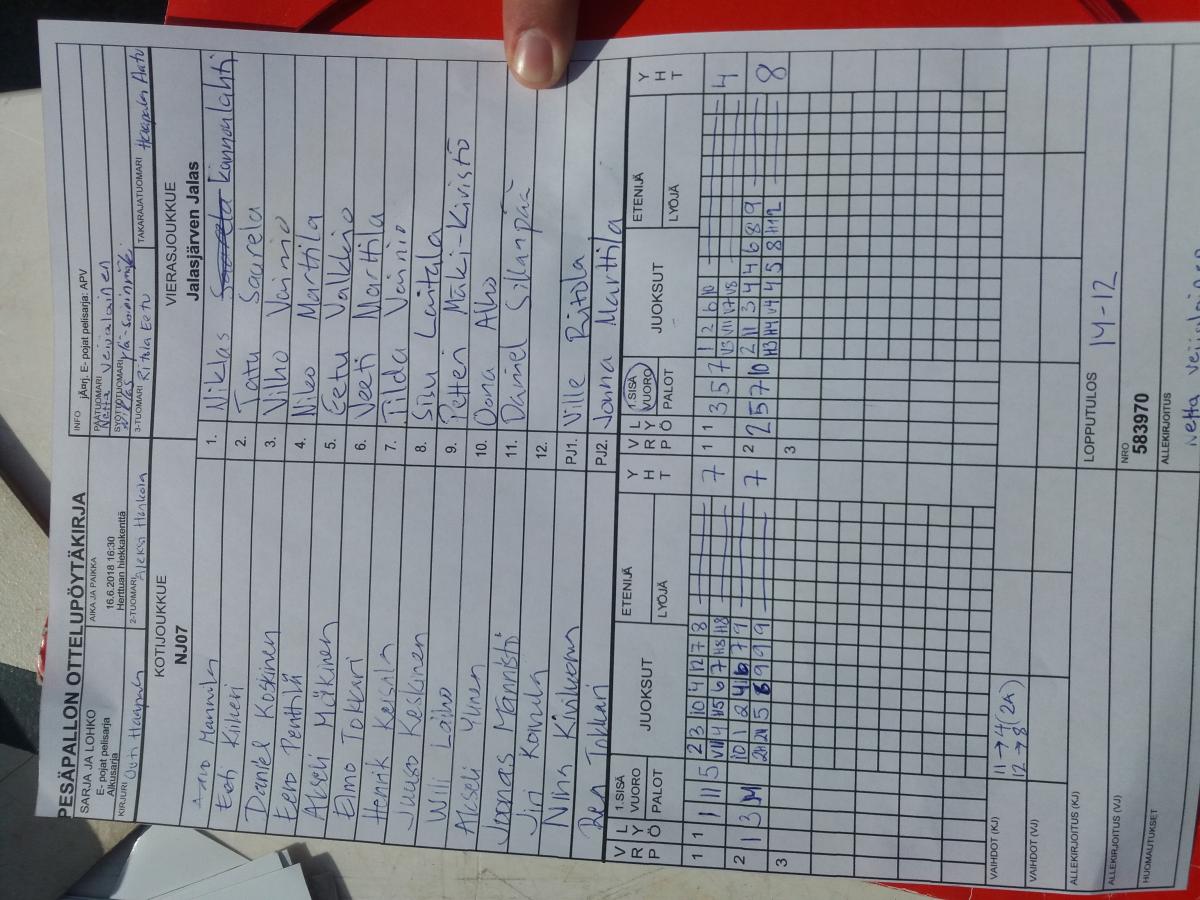 PESÄPALLON OTTELUPÖYTÄKIRJA
SARJA JA LOHKO
E- pojat pelisarja
Alkusarja
AIKA JA PAIKKA
16.6.2018 16:30
Herttuan hiekkakenttä
INFO jÄrj. E- pojat pelisarja: APV
PÄÄTUOMARI
Netta Veijalainen
SYÖTTÖTUOMARI
KIRJURI Outi Haapala
2-TUOMARI Aleksi Hankola
3-TUOMARI Ritola Eetu
TAKARAJATUOMARI Haapala Aatu
KOTIJOUKKUE
NJ07
VIERASJOUKKUE
Jalasjärven Jalas
Aaro Mannila
Eeti Kiikeri
Daniel Koskinen
Eero Penttilä
Akseli Mäkinen
Elmo Tokkari
Henrik Keisala
Juuso Keskinen
Willi Laiho
Akseli Ylinen
Joonas Männistö
Jiri Koivula
Niina Kiviluoma
Tokkari
1. Niklas Kannonlahti
2. Tatu Saarela
3. Vilho Vainio
4. Niko Marttila
5. Eetu Valkkio
6. Veeti Marttila
7. Tilda Vainio
8. Sisu Luitala
9. Petteri Mäki-Kivistö
10. Oona Alho
11. Daniel Sillanpää
12.
PJ1. Ville Ritola
PJ2. Jonna Marttila
V R L Y P Ö
1.SISÄ VUORO
PALOT
JUOKSUT
ETENIJÄ
LYÖJÄ
Y H T
V R L Y P Ö
1.SISÄ VUORO
PALOT
JUOKSUT
ETENIJÄ
LYÖJÄ
Y H T
1 1 1 11 5 2 3 10 4 12 7 8 7
V11 4 H5 6 7 H8 H8
2 1 3 10 1 2 4 6 7 9 7
2H 2H 5 8 9 9 9
3
1 1 3 5 7 1 2 6 10 4
V3 V11 V7 V8
2 2 5 7 10 2 11 3 4 4 6 8 9 8
H3 H4 V4 4 5 8 H12
3
VAIHDOT (KJ)
11→4 (2A)
12→8
VAIHDOT (VJ)
ALLEKIRJOITUS (KJ)
LOPPUTULOS 14-12
ALLEKIRJOITUS (VJ)
NRO
583970
HUOMAUTUKSET
ALLEKIRJOITUS
Netta Veijalainen